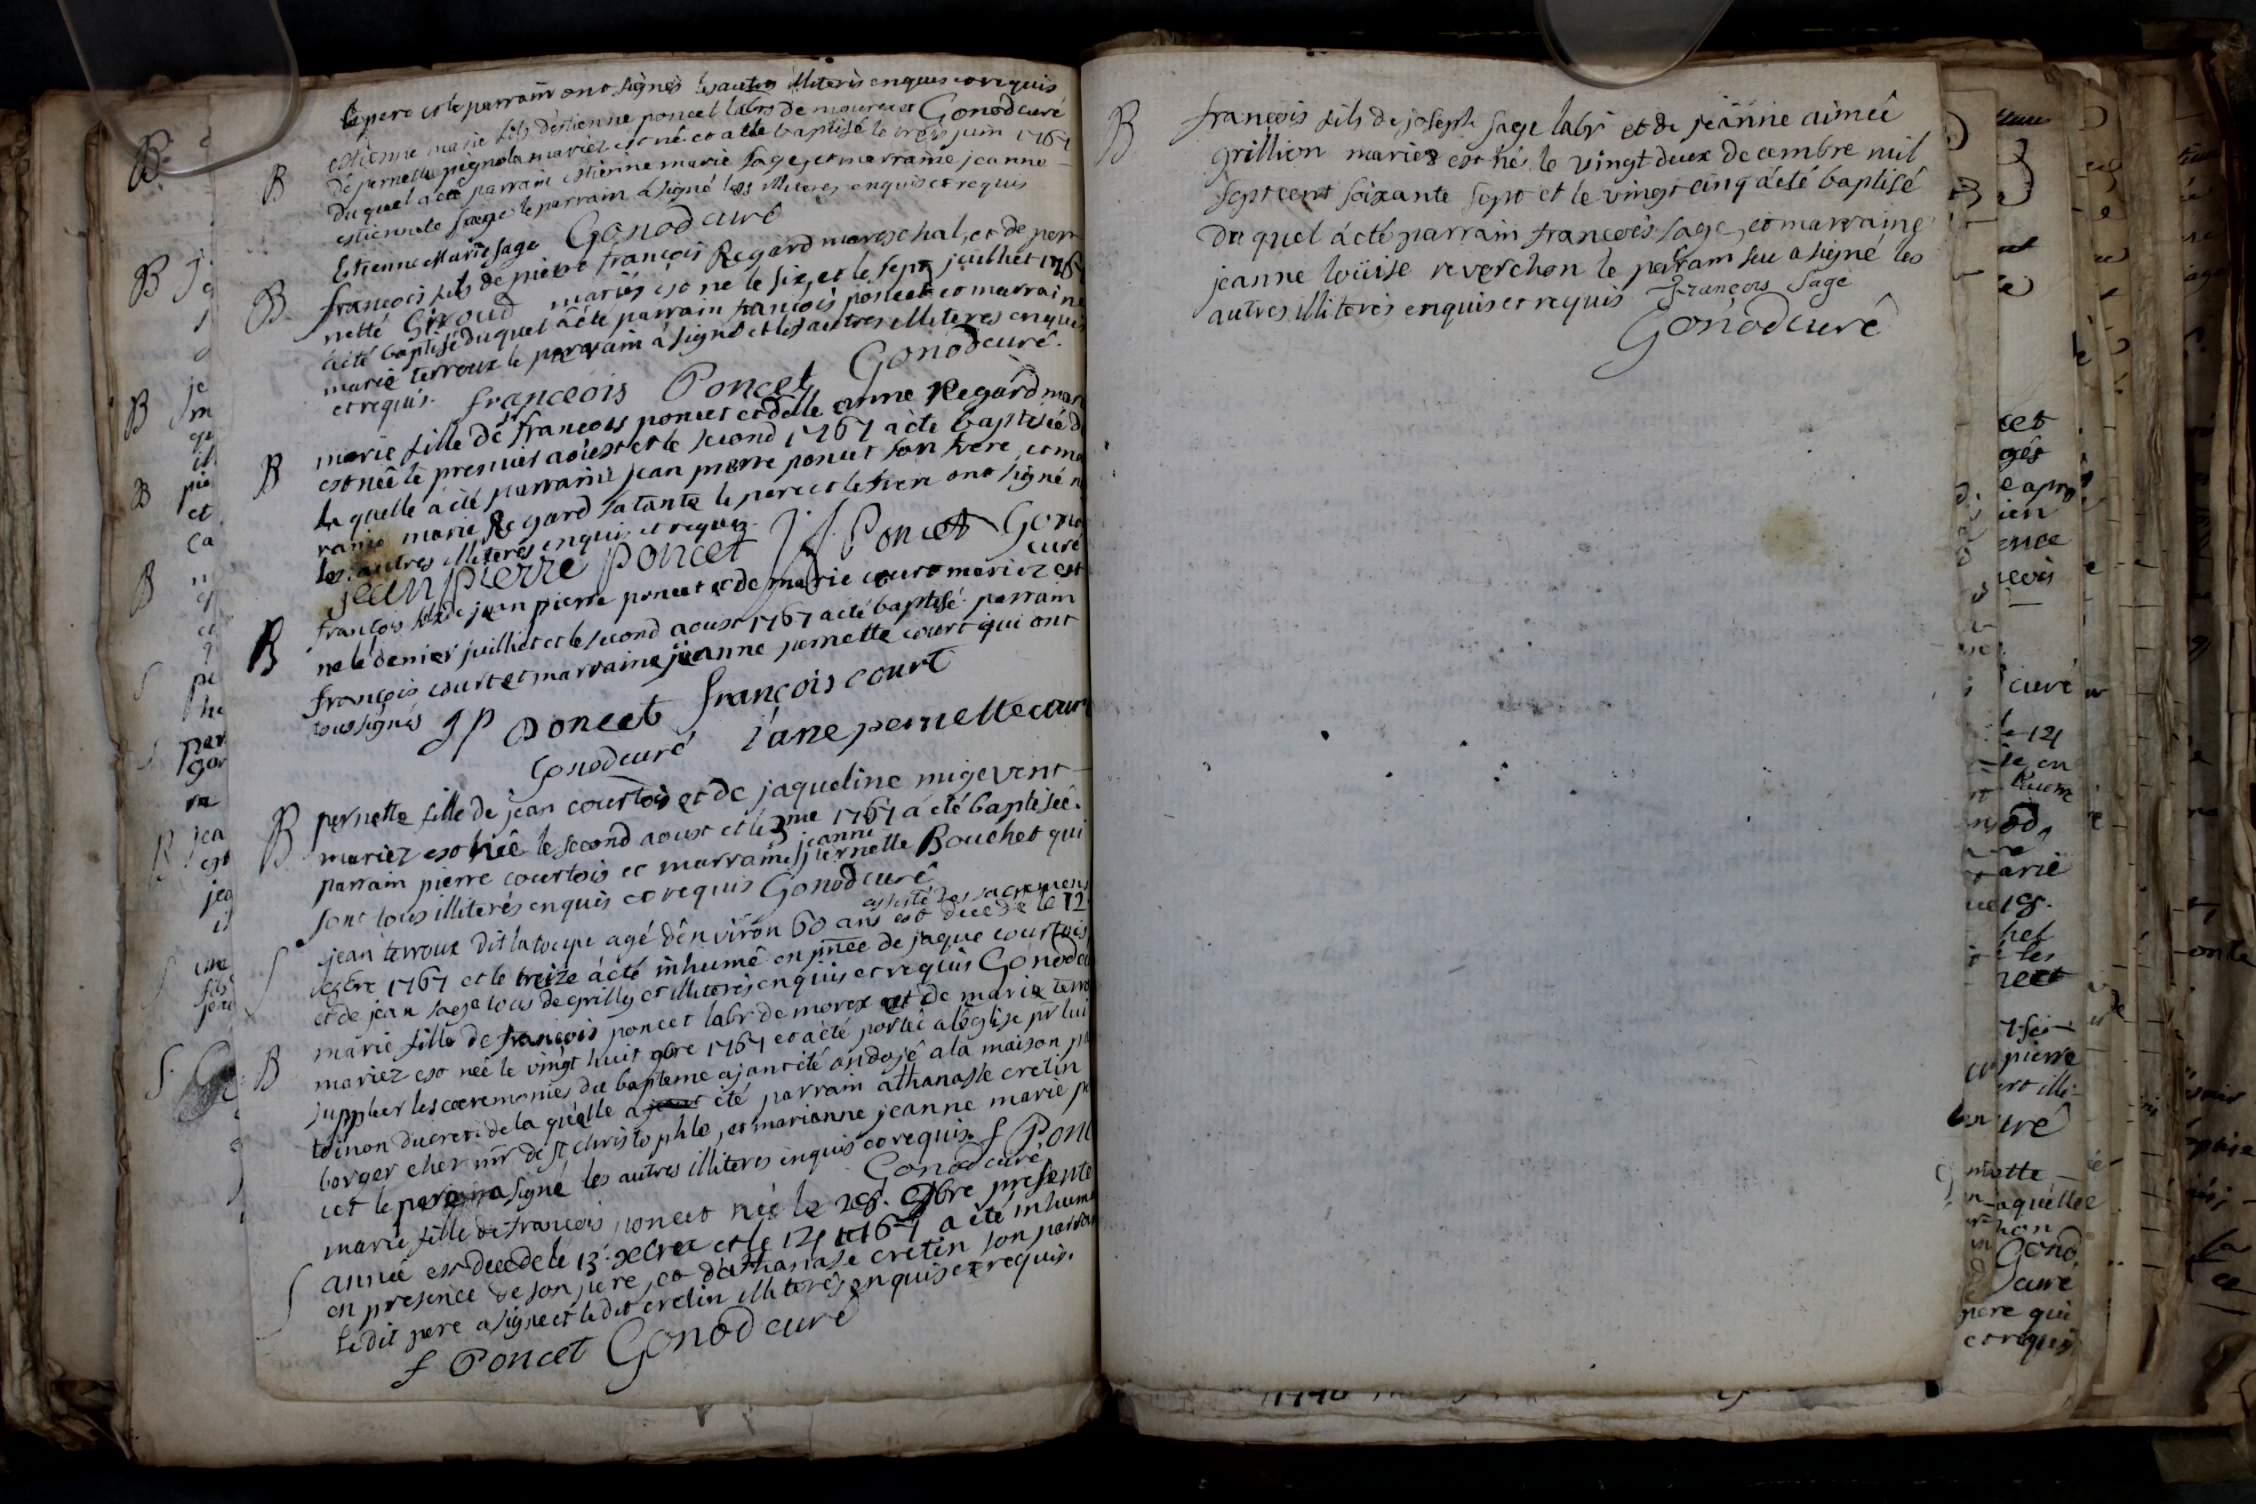 le pere et le parrain ont signés les autres illiterés enquis et requis
Gonod curé
B estienne marie fils d'estienne poncet labr de mourex et
de pernette pegnola mariez est né et a été baptisé le treis juin 1767
duquel a été parrain estienne marie sage, et marraine jeanne
estiennete sage le parrain a signé les illiteres enquis et requis
Estienne Marie Sage Gonod curé
B francois fils de pierre françois Regard mareschal, et de per
nette Giroud mariés est né le six, et le sept juilhet 1767
a été baptisé duquel a été parrain françois poncet et marraine
marie terroux le parrain a signé et les autres illiteres enquis
et requis. françois Poncet Gonod curé.
B marie fille de francois poncet et d'elle anne Regard mar
est née le premier aoust et le second 1767 a été baptisée d
la quelle a été parrain jean pierre poncet son frere, et ma
raine marie Regard sa tante le pere et le frere ont signé n
les autres illiterés enquis et requis.
jean pierre poncet f Poncet Gono
curé
B françois fils de jean pierre poncet et de marie court mariez est
né le dernier juillet et le second aoust 1767 a été baptisé parrain
françois court et marraine jeanne pernette court qui ont
tous signés JP poncet françois court
Gonod curé jane pernette cour
B pernette fille de jean courtois et de jaqueline migevent
mariez est née le second aoust et le 3me 1767 a été baptisée.
parrain pierre courtois et marraine jeanne pernette Bouchet qui
sont tous illiterés enquis et requis Gonod curé
assisté des sacremens
S jean terroux dit la toupe agé d'environ 60 ans est decedé le 12
1767 et le treize a été inhumé en pnce de jaque courtois
et de jean sage tous de grilly et illiterés enquis et requis Gonod cu
B marie fille de françois poncet labr de morex et de marie terro
mariez est née le vingt huit 9bre 1767 et a été portée a l'eglise pr lui
suppleer les cœremonies du bapteme ajant été ondojé a la maison pa
toinon ducret de la quelle a été parrain athanasle cretin
borger cher mr de st christophle, et marianne jeanne marie po
cet le parrain a signé les autres illiteres enquis et requis. f Ponc
Gonod curé
S marie fille de françois poncet née le 28. 9bre presente
année est decedé le 13. xbre et le 14 1767 a été inhumé
en presence de son pere, et d'athanase cretin son parrain
le dit pere a signé et le dit cretin illiterés enquis et requis.
f Poncet Gonod curé
B françois fils de joseph sage labr et de jeanne aimeé
grillion mariez est né le vingt deux decembre mil
sept cent soixante sept et le vingt cinq a été baptisé
du quel a été parrain françois sage, et marraine
jeanne loüise reverchon le parrain seu a signé les
autres illiterés enquis et requis François Sage
Gonod curé